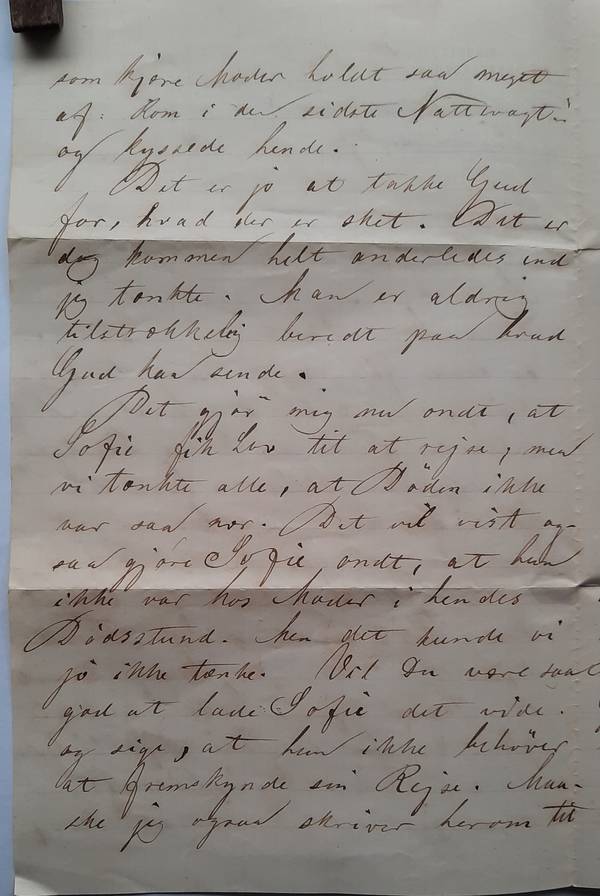 som kjære Moder holdt saa meget
af: Kom i den sidste Nattevagt"
og kyssede hende.
Det er jo at takke Gud
for, hvad der er sket. Det er
dog kommen helt anderledes end
jeg tænkte. Man er aldrig
tilstrækkelig beredt paa hvad
Gud kan sende.
Det gjør mig nu ondt, at
Sofie fik Lov til at rejse, men
vi tænkte alle, at Döden ikke
var saa nær. Det vil vist og-
saa gjøre Sofie ondt, at hun
ikke var hos Moder i hendes
Dödsstund. Men det kunde vi
jo ikke tænke. Vil Du være saa
god at lade Sofie det vide.
og sige, at hun ikke behöver
at fremskynde sin Rejse. Maa-
ske jeg ogsaa skriver herom til